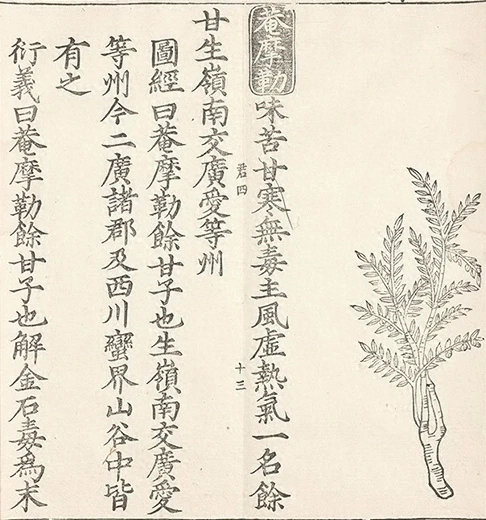 菴摩勒味苦甘寒無毒主風虛熱氣一名餘
甘生嶺南交廣愛等州
君四
十三
圖經曰菴摩勒餘甘子也生嶺南交廣愛
等州今二廣諸郡及西川蠻界山谷中皆
有之
衍義曰菴摩勒餘甘子也解金石毒為末